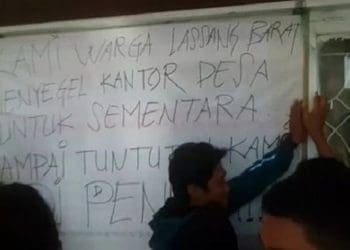 KAMI WARGA LASSANG BARAT
MENYEGEL KANTOR DESA
UNTUK SEMENTARA
SAMPAI TUNTUTAN KAMI
DI PEN